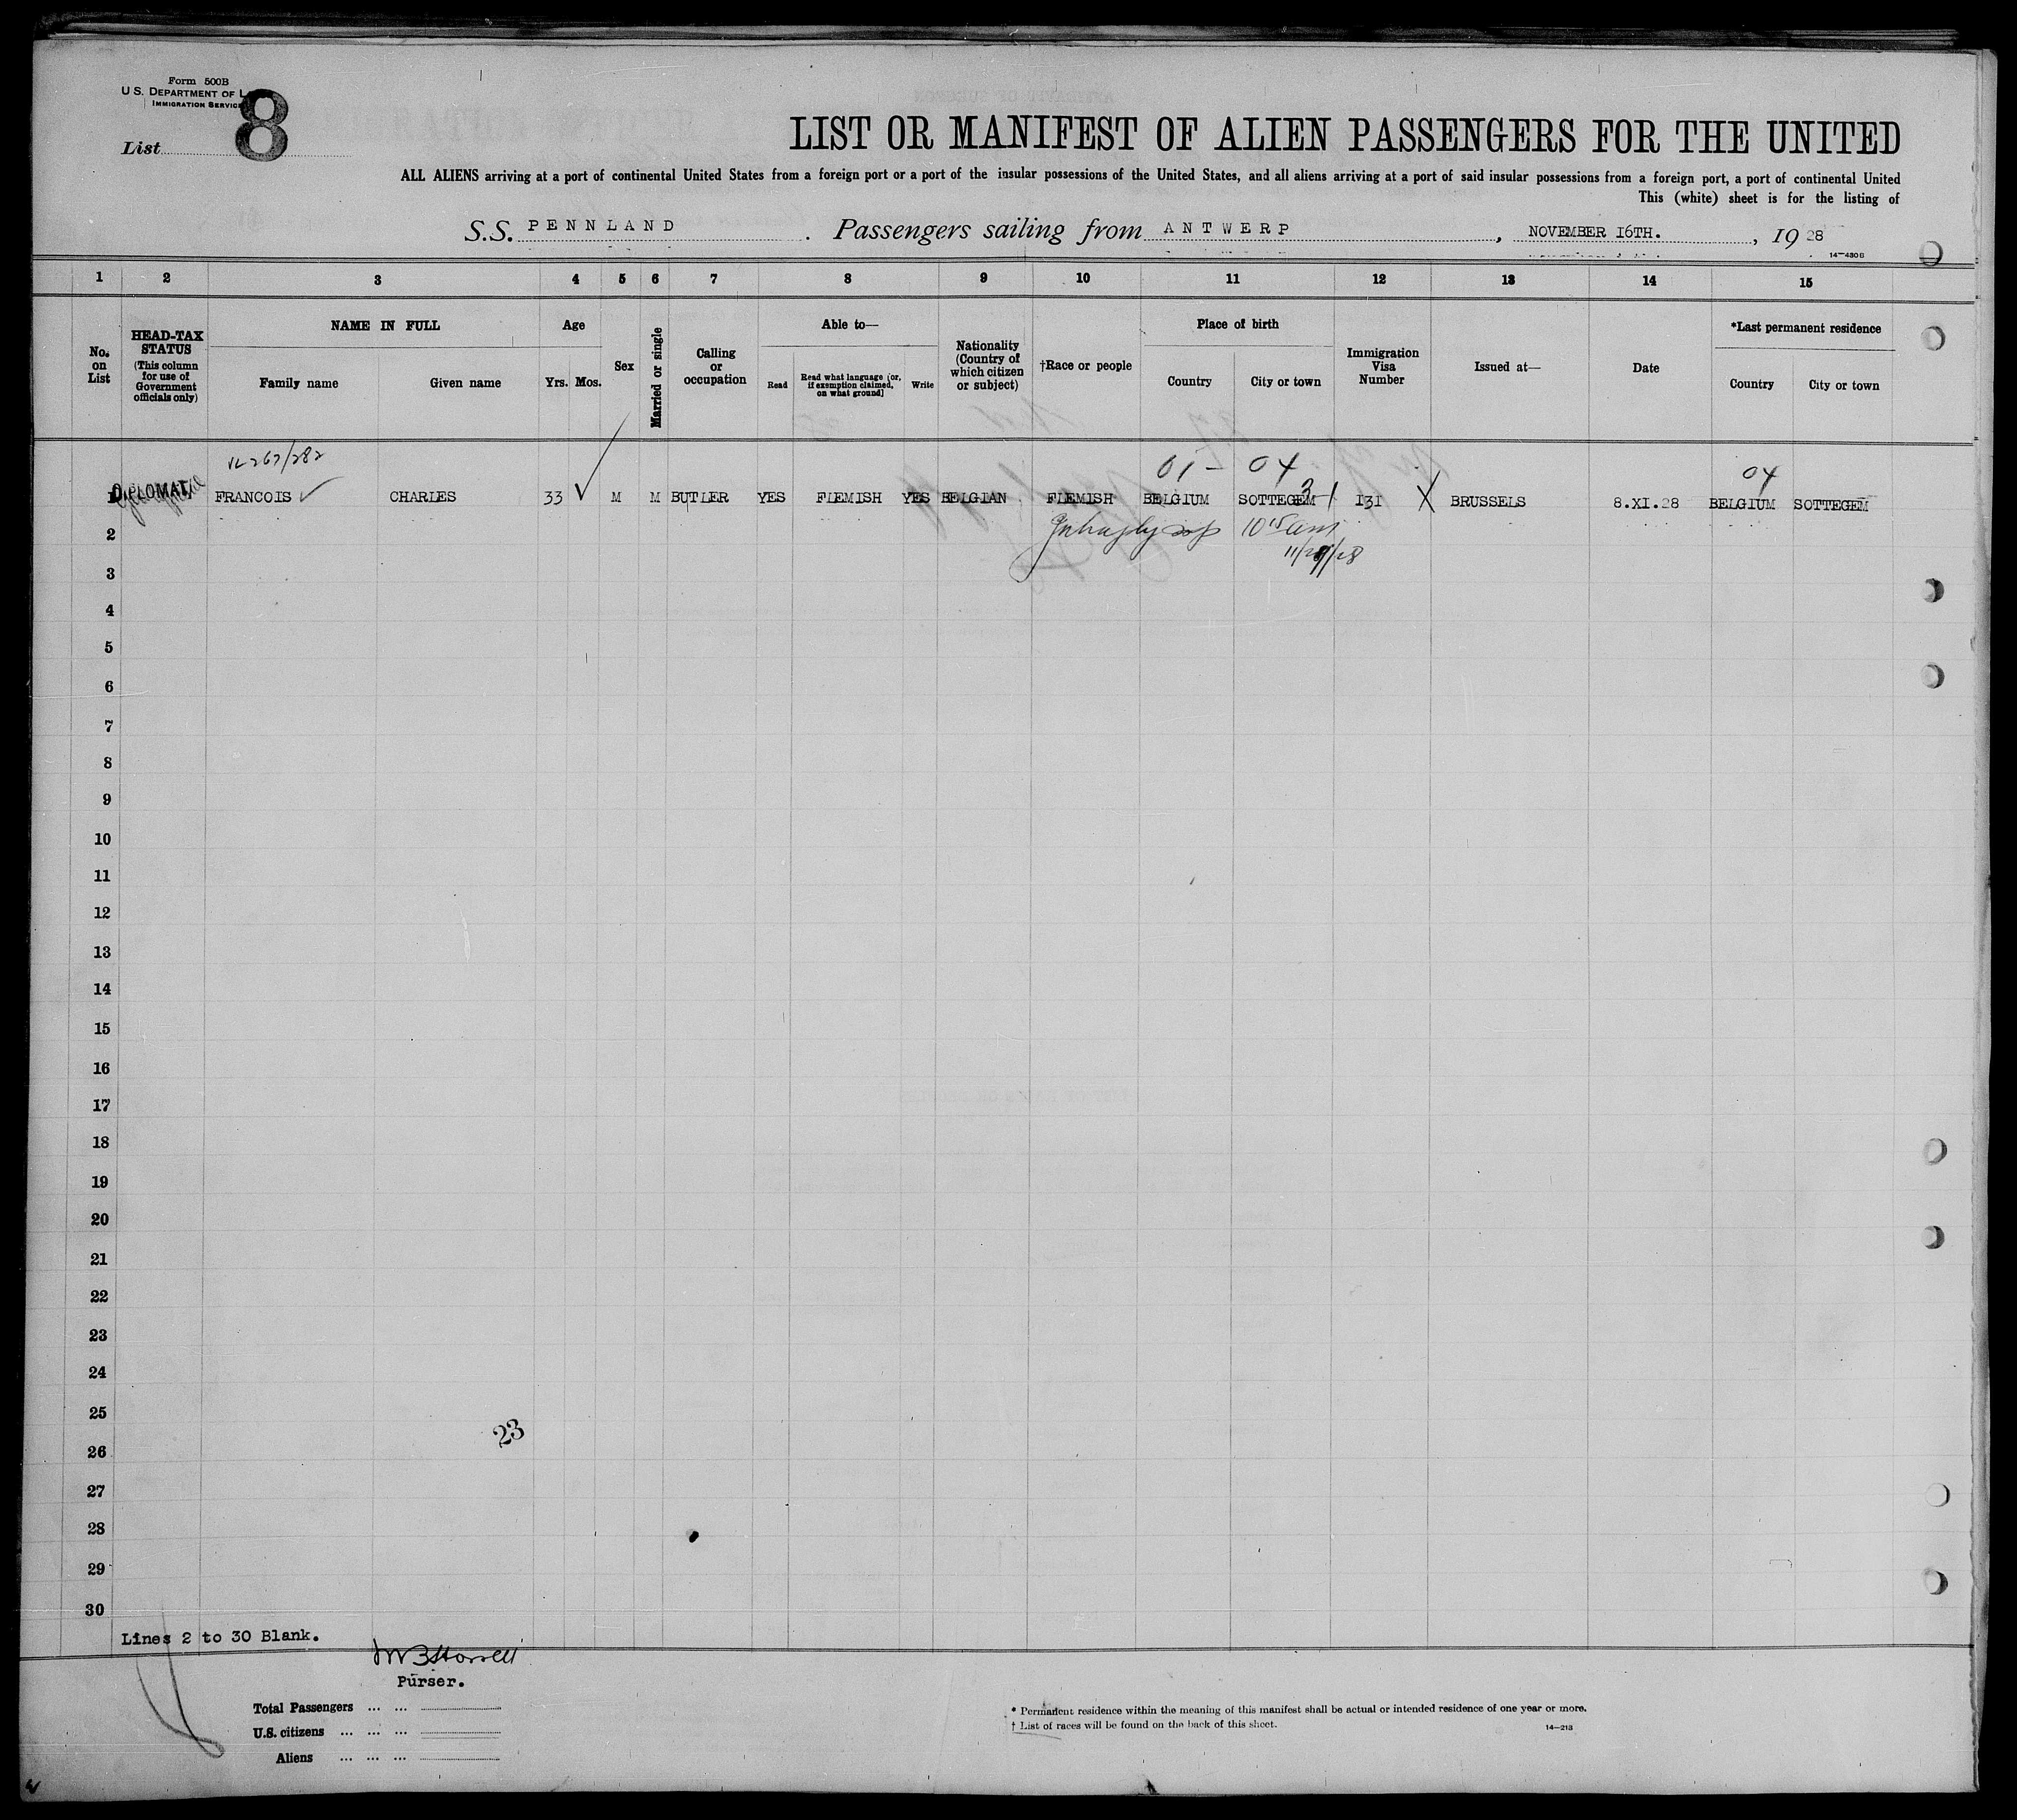 Form 500B
U.S. DEPARTMENT OF L
IMMIGRATION SERVICE
List 8
LIST OR MANIFEST OF ALIEN PASSENGERS FOR THE UNITED
ALL ALIENS arriving at a port of continental United States from a foreign port or a port of the insular possessions of the United States, and all aliens arriving at a port of said insular possessions from a foreign port, a port of continental United
This (white) sheet is for the listing of
S.S. PENNLAND . Passengers sailing from ANTWERP , NOVEMBER 16TH. , 19 28
14—430B
1 2 3 4 5 6 7 8 9 10 11 12 13 14 15
No. on List
HEAD-TAX STATUS (This column for use of Government officials only)
NAME IN FULL
Family name Given name
Age
Yrs. Mos.
Sex
Married or single
Calling or occupation
Able to—
Read Read what language [or, if exemption claimed, on what ground] Write
Nationality (Country of which citizen or subject)
†Race or people
Place of birth
Country City or town
Immigration Visa Number
Issued at—
Date
*Last permanent residence
Country City or town
01 - 04 04
1 DIPLOMAT FRANCOIS CHARLES 33 M M BUTLER YES FLEMISH YES BELGIAN FLEMISH BELGIUM SOTTEGEM 131 BRUSSELS 8.XI.28 BELGIUM SOTTEGEM
2
3
4
5
6
7
8
9
10
11
12
13
14
15
16
17
18
19
20
21
22
23
24
25
23
26
27
28
29
30
Lines 2 to 30 Blank.
Purser.
Total Passengers ... ...
U.S. citizens ... ... ...
Aliens ... ... ...
* Permanent residence within the meaning of this manifest shall be actual or intended residence of one year or more.
† List of races will be found on the back of this sheet.
14—213